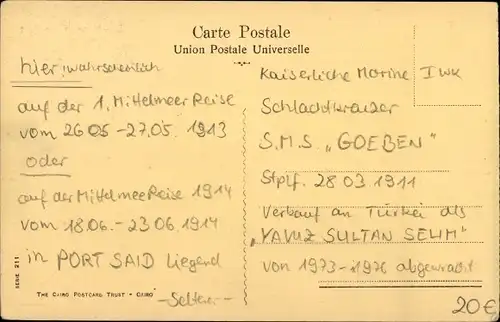 Carte Postale
Union Postale Universelle
hier: wahrscheinlich
auf der 1. Mittelmeer Reise
vom 26 05 - 27.05. 1913
oder
auf der Mittelmee Reise 1914
vom 18.06. - 23 06. 1914
in PORT SAID liegend
- Selten -
SERIE 211
THE CAIRO POSTCARD TRUST - CAIRO
Kaiserliche Marine I WK
Schlachtkreuzer
S.M.S „GOEBEN"
Stplf. 28 03 1911
Verkauf an Türkei als
„YAVUZ SULTAN SELIM"
von 1973 - 1976 abgewrackt
20€